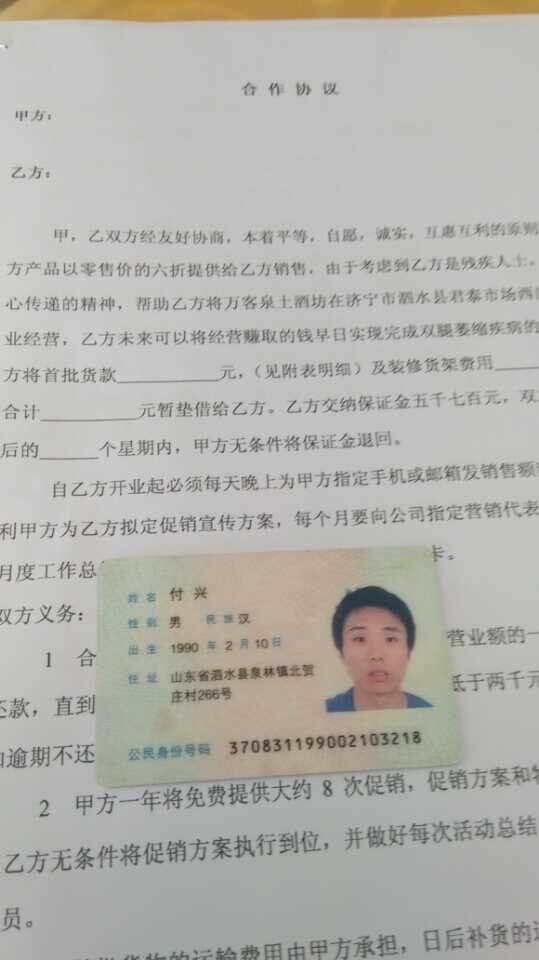 合作协议
甲方：
乙方：
甲，乙双方经友好协商，本着平等，自愿，诚实，互惠互利的原则
方产品以零售价的六折提供给乙方销售，由于考虑到乙方是残疾人士。
心传递的精神，帮助乙方将万客泉土酒坊在济宁市泗水县君泰市场西
业经营，乙方未来可以将经营赚取的钱早日实现完成双腿萎缩疾病的
方将首批货款________元，（见附表明细）及装修货架费用____
合计________元暂垫借给乙方。乙方交纳保证金五千七百元，双
后的_____个星期内，甲方无条件将保证金退回。
自乙方开业起必须每天晚上为甲方指定手机或邮箱发销售额
利甲方为乙方拟定促销宣传方案，每个月要向公司指定营销代表
月度工作总 卡。
双方义务：
姓名 付兴
性别 男 民族 汉
出生 1990年2月10日
住址 山东省泗水县泉林镇北贺
庄村266号
公民身份号码 370831199002103218
1 合 营业额的一
还款，直到 低于两千元
如逾期不还
2 甲方一年将免费提供大约8次促销，促销方案和
乙方无条件将促销方案执行到位，并做好每次活动总结
员。
货物的运输费用由甲方承担，日后补货的